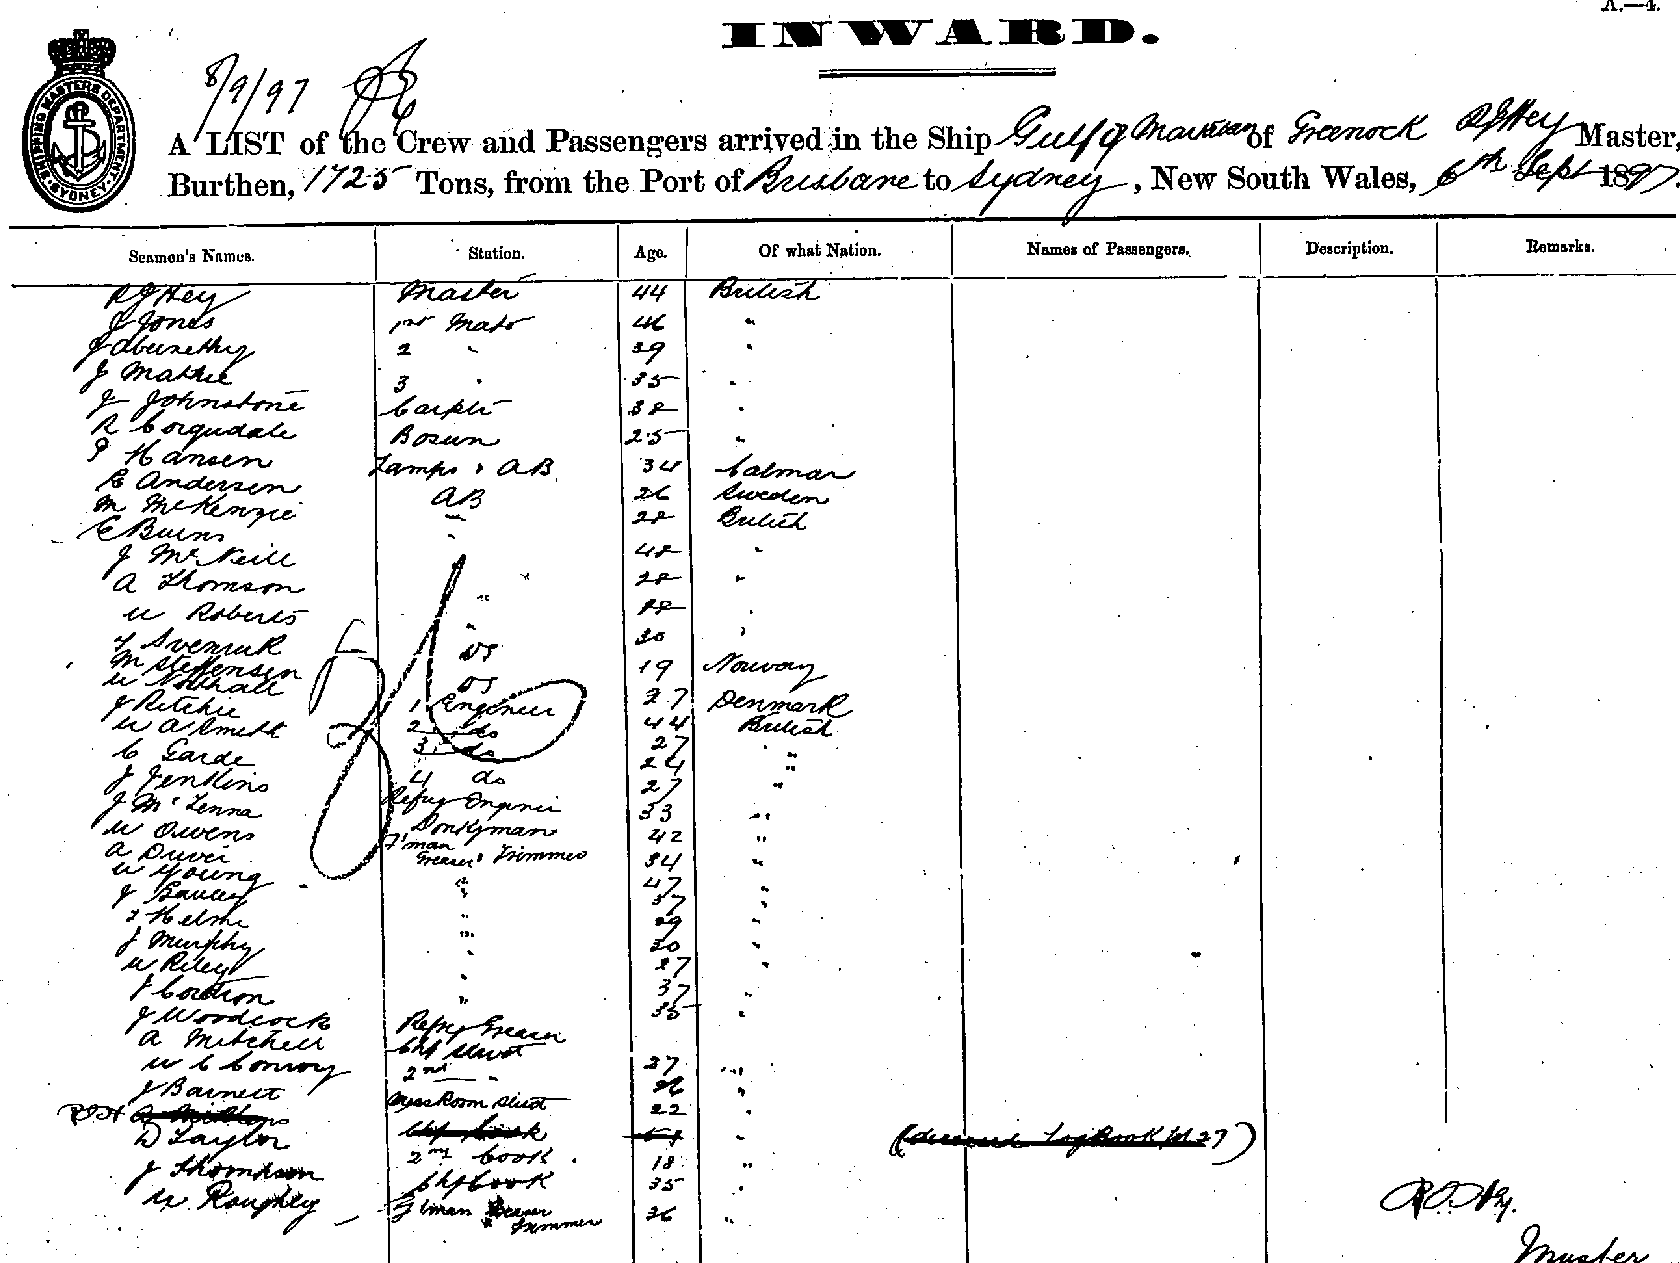 A.—4.
INWARD.
SHIPPING MASTERS DEPARTMENT SYDNEY
8/9/97
A LIST of the Crew and Passengers arrived in the Ship Gulf of of Greenock R J Hey Master,
Burthen, 1725 Tons, from the Port of Brisbane to Sydney, New South Wales, 6th Sept 1897.
Seamen's Names. Station. Age. Of what Nation. Names of Passengers. Description. Remarks.
R J Hey Master 44 British
J Jones 1st Mate 46 "
J Abernethy 2 " 39 "
J Mathie 3 " 35 "
J Johnstone Carptr 38 "
R Corqudale Bosun 25 "
P Hansen Lamps & AB 34 Calmar
E Andersen AB 26 Sweden
M McKenzie " 28 British
E Burns "
J McNeill 48 "
A Thomson 28 "
W Roberts "
30 "
M Steffensen OS 19 Norway
W Nuthall OS 27 Denmark
J Ritchie 1 Engineer 44 British
W A Smith 2 do 27 "
C Garde 3 do 24 "
J Jenkins 4 do 27 "
J McLenna Refrig Engineer 33 "
W Owens Donkyman 42 "
A F'man Greaser & Trimmer 34 "
W Young " 47 "
J 37 "
Helme " 29 "
J Murphy " 30 "
W Riley " 27 "
J " 37 "
J Woodcock Refrig Greaser 35 "
A Mitchell Chf Stwdt
W C Conroy 2nd " 27 "
J Barnett Messroom Stwdt 26 "
RJH 22 "
D Taylor Chf Cook ( Log Book 27)
2nd Cook 18 "
J Thompson Chf Cook 35 "
W Roughley F'man Greaser & Trimmer 26 "
R J Hey.
Master